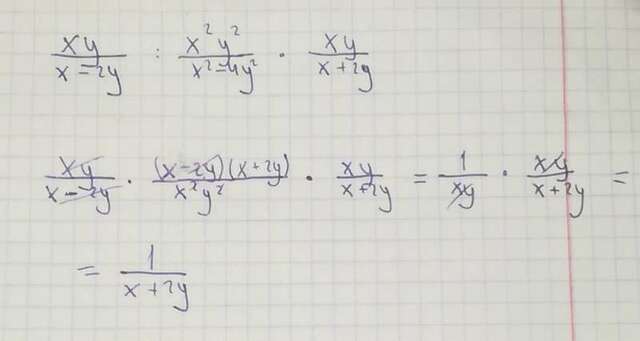 xy/(x-2y) : x²y²/(x²-4y²) · xy/(x+2y)
xy/(x-2y) · (x-2y)(x+2y)/x²y² · xy/(x+2y) = 1/xy · xy/(x+2y) =
= 1/(x+2y)